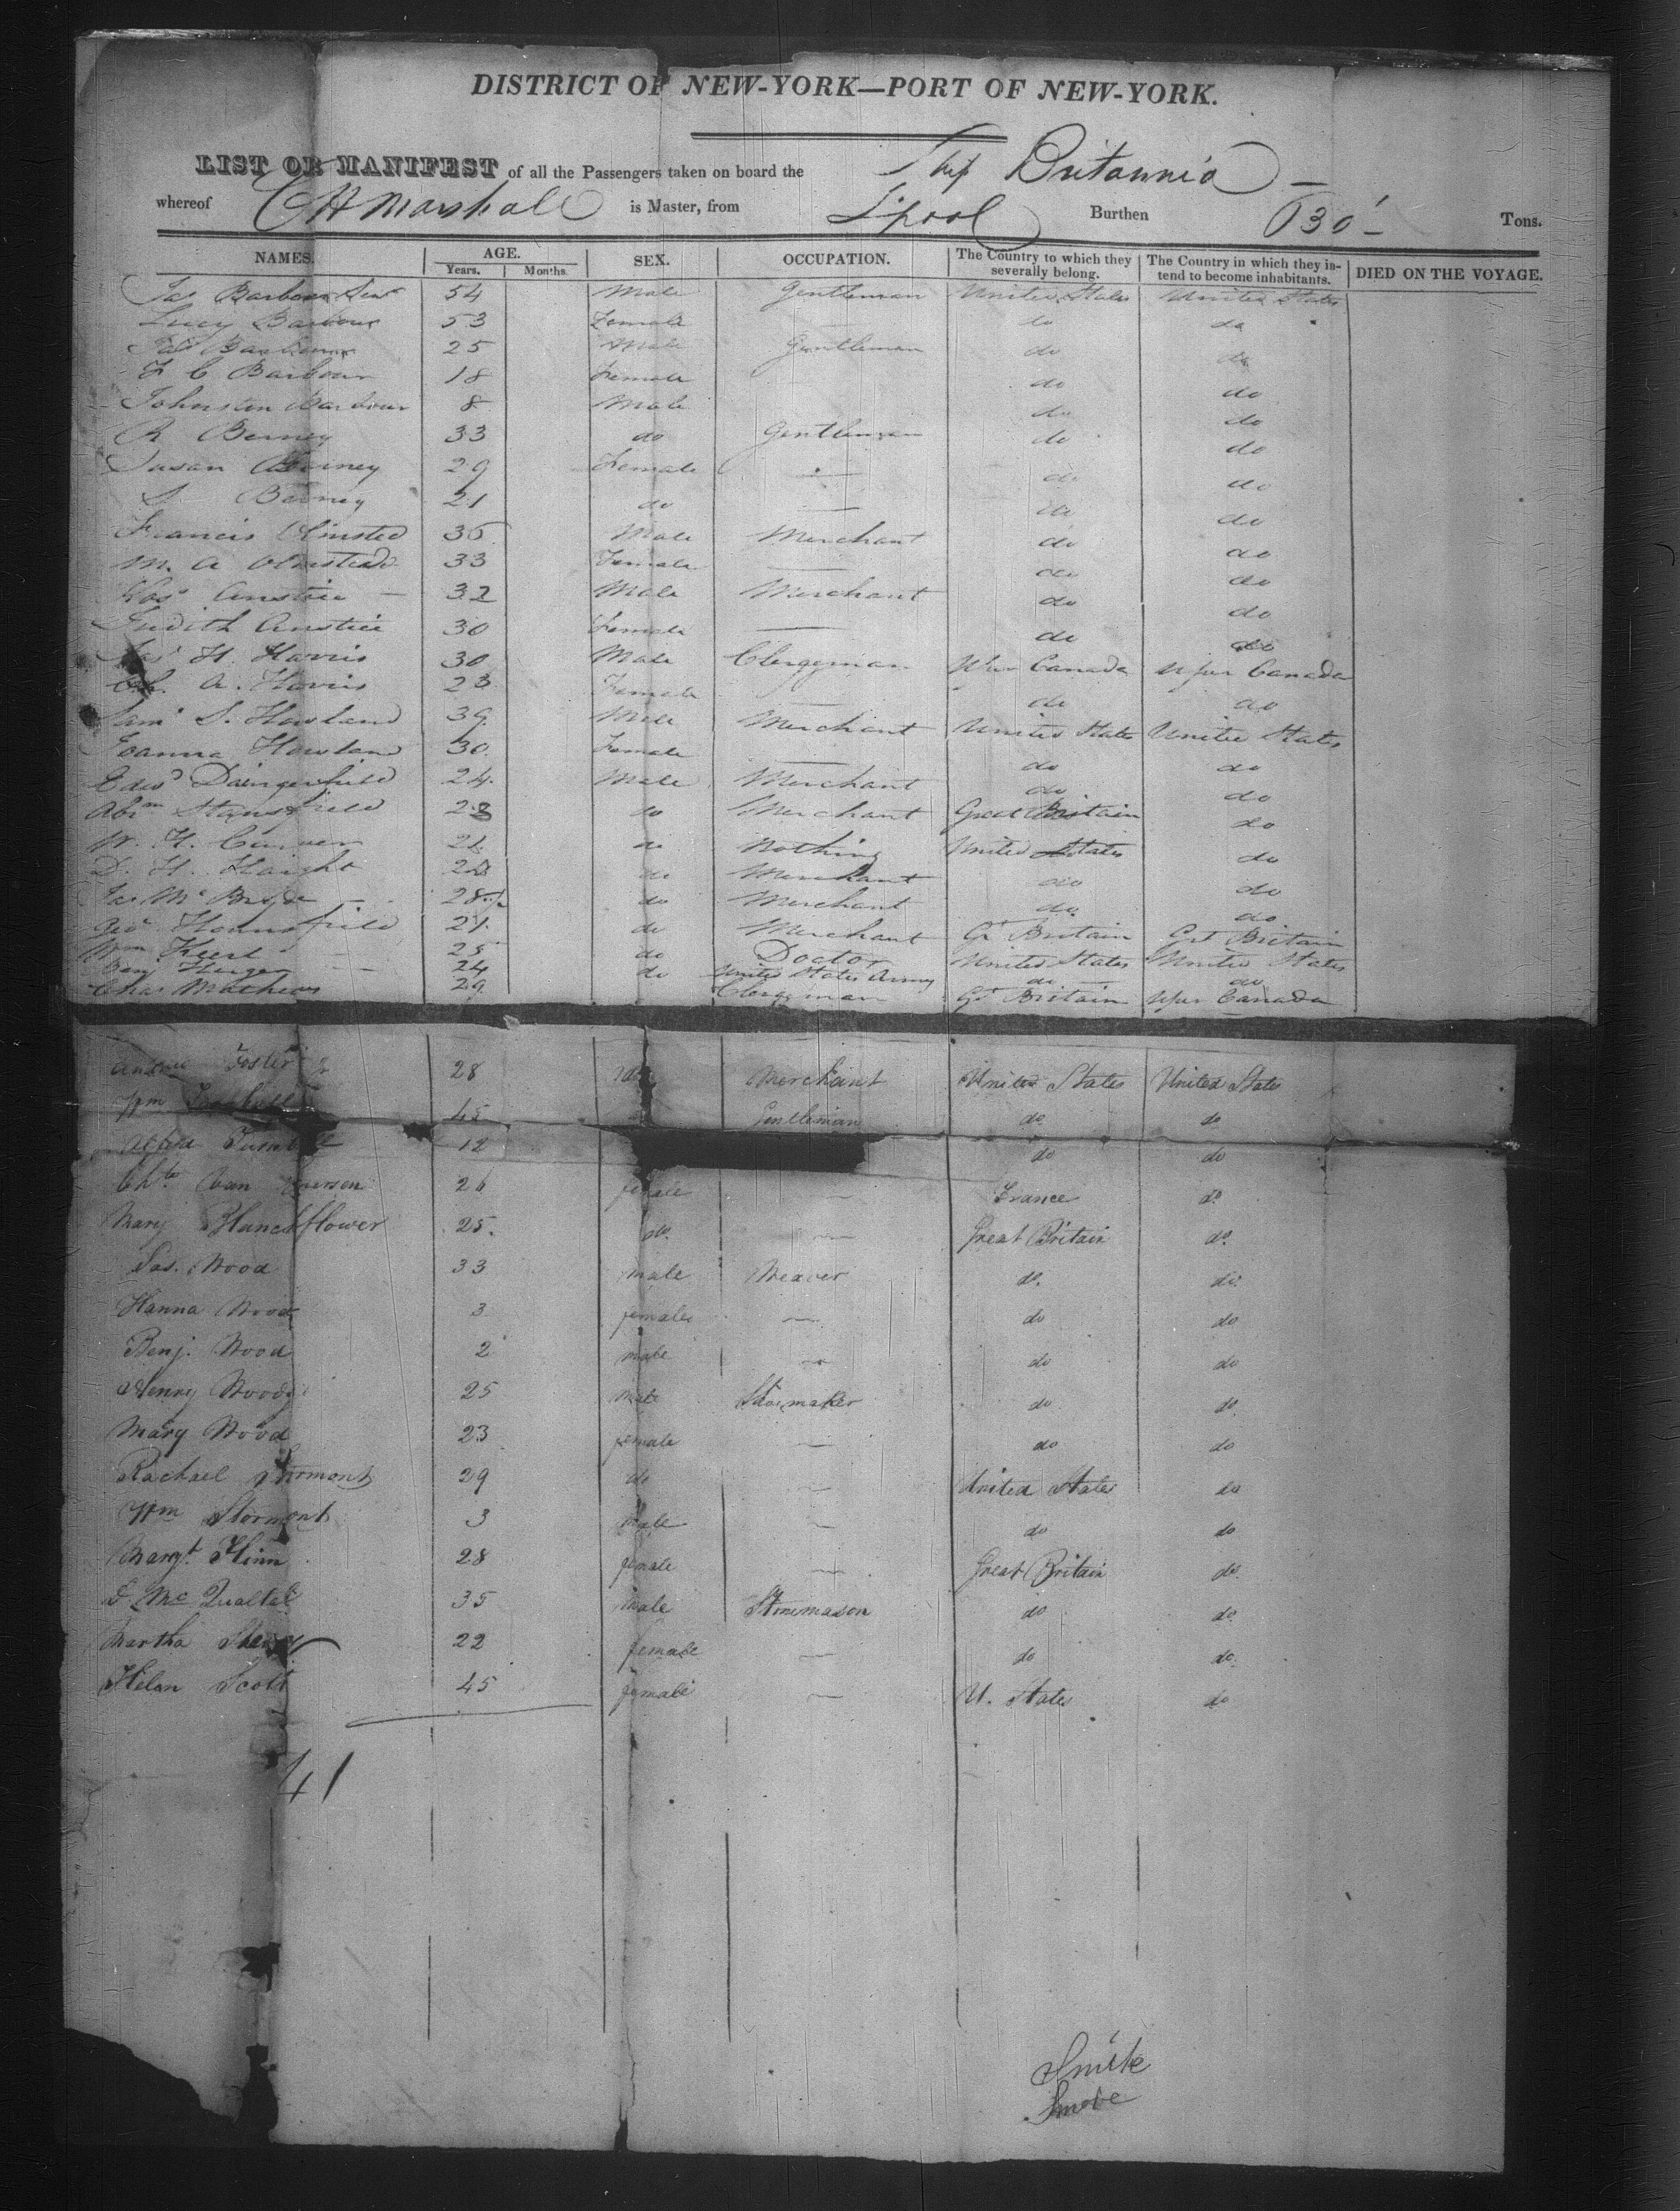 DISTRICT OF NEW-YORK—PORT OF NEW-YORK.
LIST OR MANIFEST of all the Passengers taken on board the Ship Britannia
whereof C H Marshall is Master, from L'pool Burthen 630 Tons.
NAMES. AGE. Years. Months. SEX. OCCUPATION. The Country to which they severally belong. The Country in which they intend to become inhabitants. DIED ON THE VOYAGE.
Jas Barbour Senr 54 Male Gentleman United States United States
Lucy Barbour 53 Female do do
Jas Barbour 25 Male Gentleman do do
F C Barbour 18 Female do do
Johnston Barbour 8 Male do do
R Berney 33 do Gentleman do do
Susan Berney 29 Female do do
S. Berney 21 do do do
Francis Olmsted 36 Male Merchant do do
M. A Olmstead 33 Female do do
Anstice 32 Male Merchant do do
Judith Anstice 30 Female do do
Jas H. Harris 30 Male Clergeman Uper Canada Uper Canada
Ch. A. Harris 23 Female do do
Saml S. Howland 39 Male Merchant United States United States
Joanna Howland 30 Female do do
Edwd Daingerfield 24 Male Merchant do do
Abrm Stansfield 23 do Merchant Great Britain do
W. H. 21 do Nothing United States do
D. H. Haight 22 do Merchant do do
Jas Mc Bryde 28 do Merchant do do
Geo Hounsfield 21 do Merchant Gt Britain Grt Britain
Wm Keert 25 do Doctor United States United States
Benj Huger 24 do United States Army do do
Chas Mathews 29 Clergeman Gt Britain Uper Canada
Foster Jr 28 Merchant United States United States
Wm 45 Gentleman do do
12 do do
Chte Van 26 female France do
Mary Hanchflower 25. do. Great Britain do.
Jas. Wood 33 male Weaver do. do.
Hanna Wood 3 female do do
Benj. Wood 2 male do do
Henry Wood 25 male Shoemaker do do
Mary Wood 23 female do do
Rachael Stormont 29 do United States do
Wm Stormont 3 Male do do
Margt. Flinn 28 female Great Britain do.
Mc Qualtal 35 male Stonemason do do
Martha 22 female do do.
Helen Scott 45 female U. States do
41
Smite
Smote